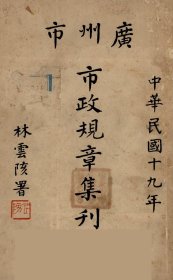 廣州市
市政規章集刊
中華民國十九年
林雲陔署